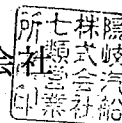 隠岐汽船
株式会社
七類営業
所印
会社